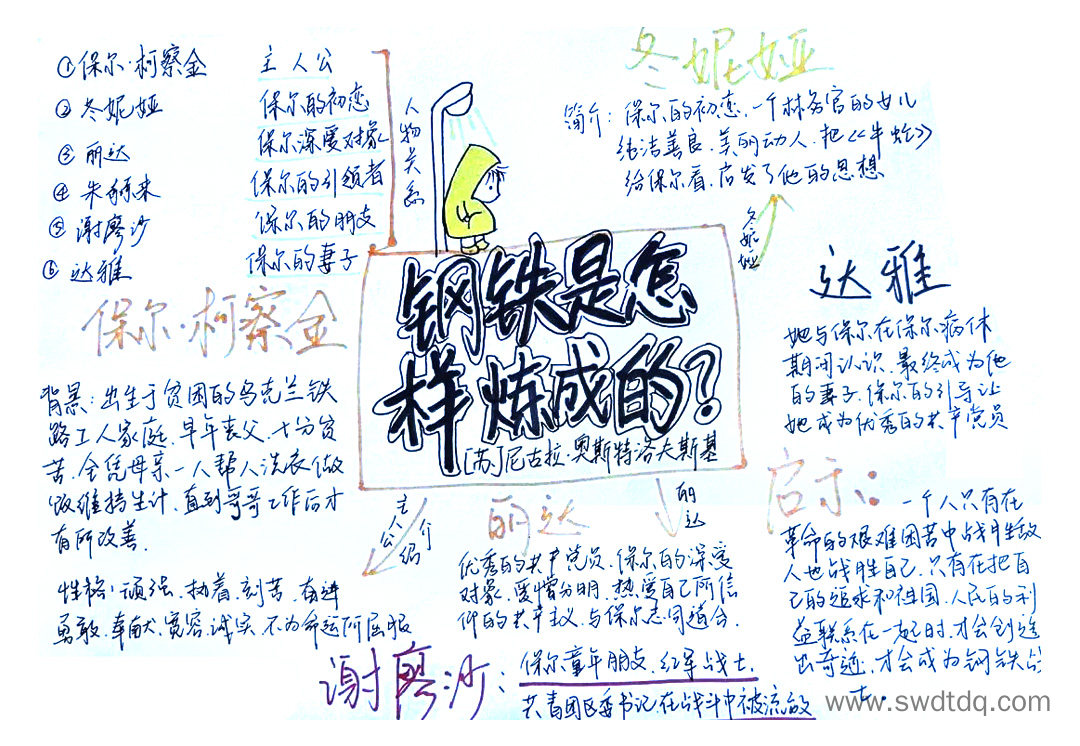 ①保尔·柯察金 主人公
②冬妮娅 保尔的初恋
③丽达 保尔深爱对象
④朱赫来 保尔的引领者
⑤谢廖沙 保尔的朋友
⑥达雅 保尔的妻子
人物关系
冬妮娅
简介：保尔的初恋、一个林务官的女儿
纯洁善良、美丽动人、把《牛虻》
给保尔看、启发了他的思想
冬妮娅
钢铁是怎
样炼成的？
[苏]尼古拉·奥斯特洛夫斯基
达雅
她与保尔在保尔病休
期间认识、最终成为他
的妻子、保尔的引导让
她成为优秀的共产党员
保尔·柯察金
背景：出生于贫困的乌克兰铁
路工人家庭、早年丧父、十分贫
苦、全凭母亲一人帮人洗衣做
饭维持生计、直到哥哥工作后才
有所改善.
主人公介绍
性格：顽强、执着、刻苦、奋进
勇敢、奉献、宽容、诚实、不为命运所屈服
丽达
的达
优秀的共产党员、保尔的深爱
对象、爱憎分明、热爱自己所信
仰的共产主义、与保尔志同道合.
启示：
一个人只有在
革命的艰难困苦中战胜敌
人也战胜自己、只有在把自
己的追求和祖国、人民的利
益联系在一起时、才会创造
出奇迹、才会成为钢铁战
士.
谢廖沙：
保尔童年朋友、红军战士、
共青团区委书记在战斗中被流放
www.swdtdq.com